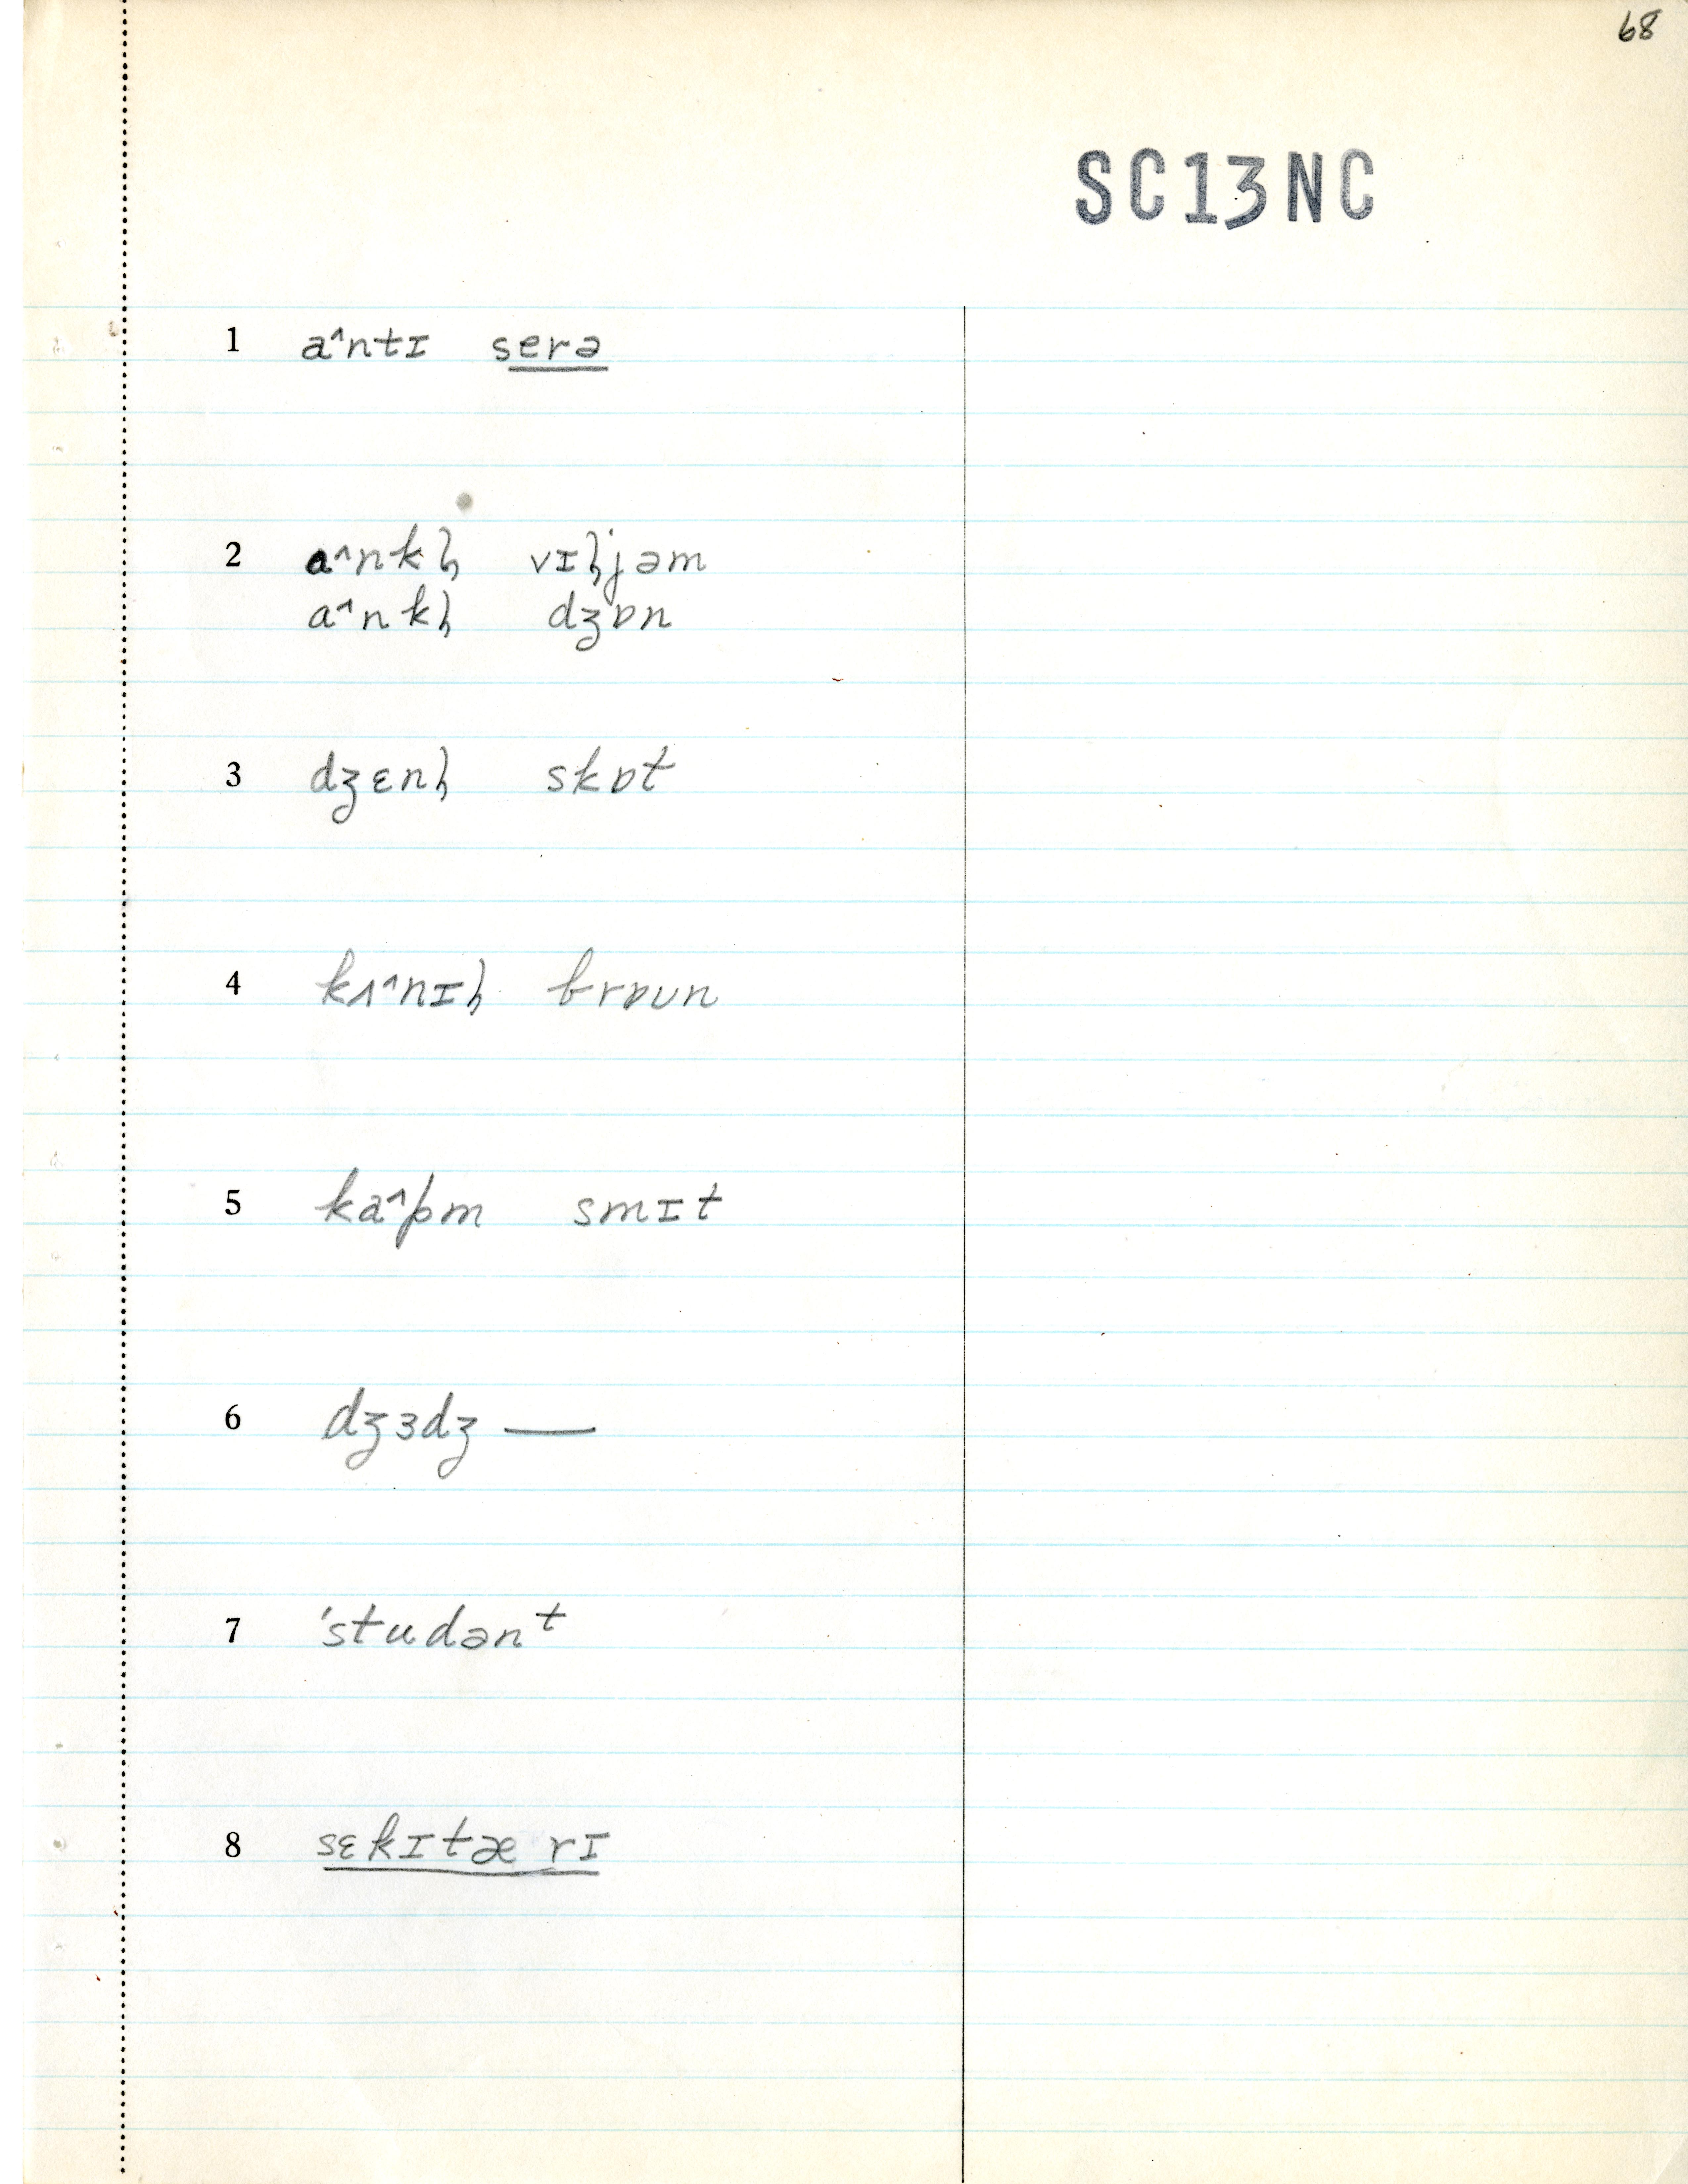 68
SC13NC
1 a˄ntɪ serə
2 a˄nkl̩ vɪl̩jəm
a˄nkl̩ dʒɒn
3 dʒɛnl̩ skɒt
4 kʌ˄nɪl̩ brɒʊn
5 ka˄pm smɪt
6 dʒɜdʒ —
7 ˈstudənᵗ
8 sɛkɪtæ rɪ